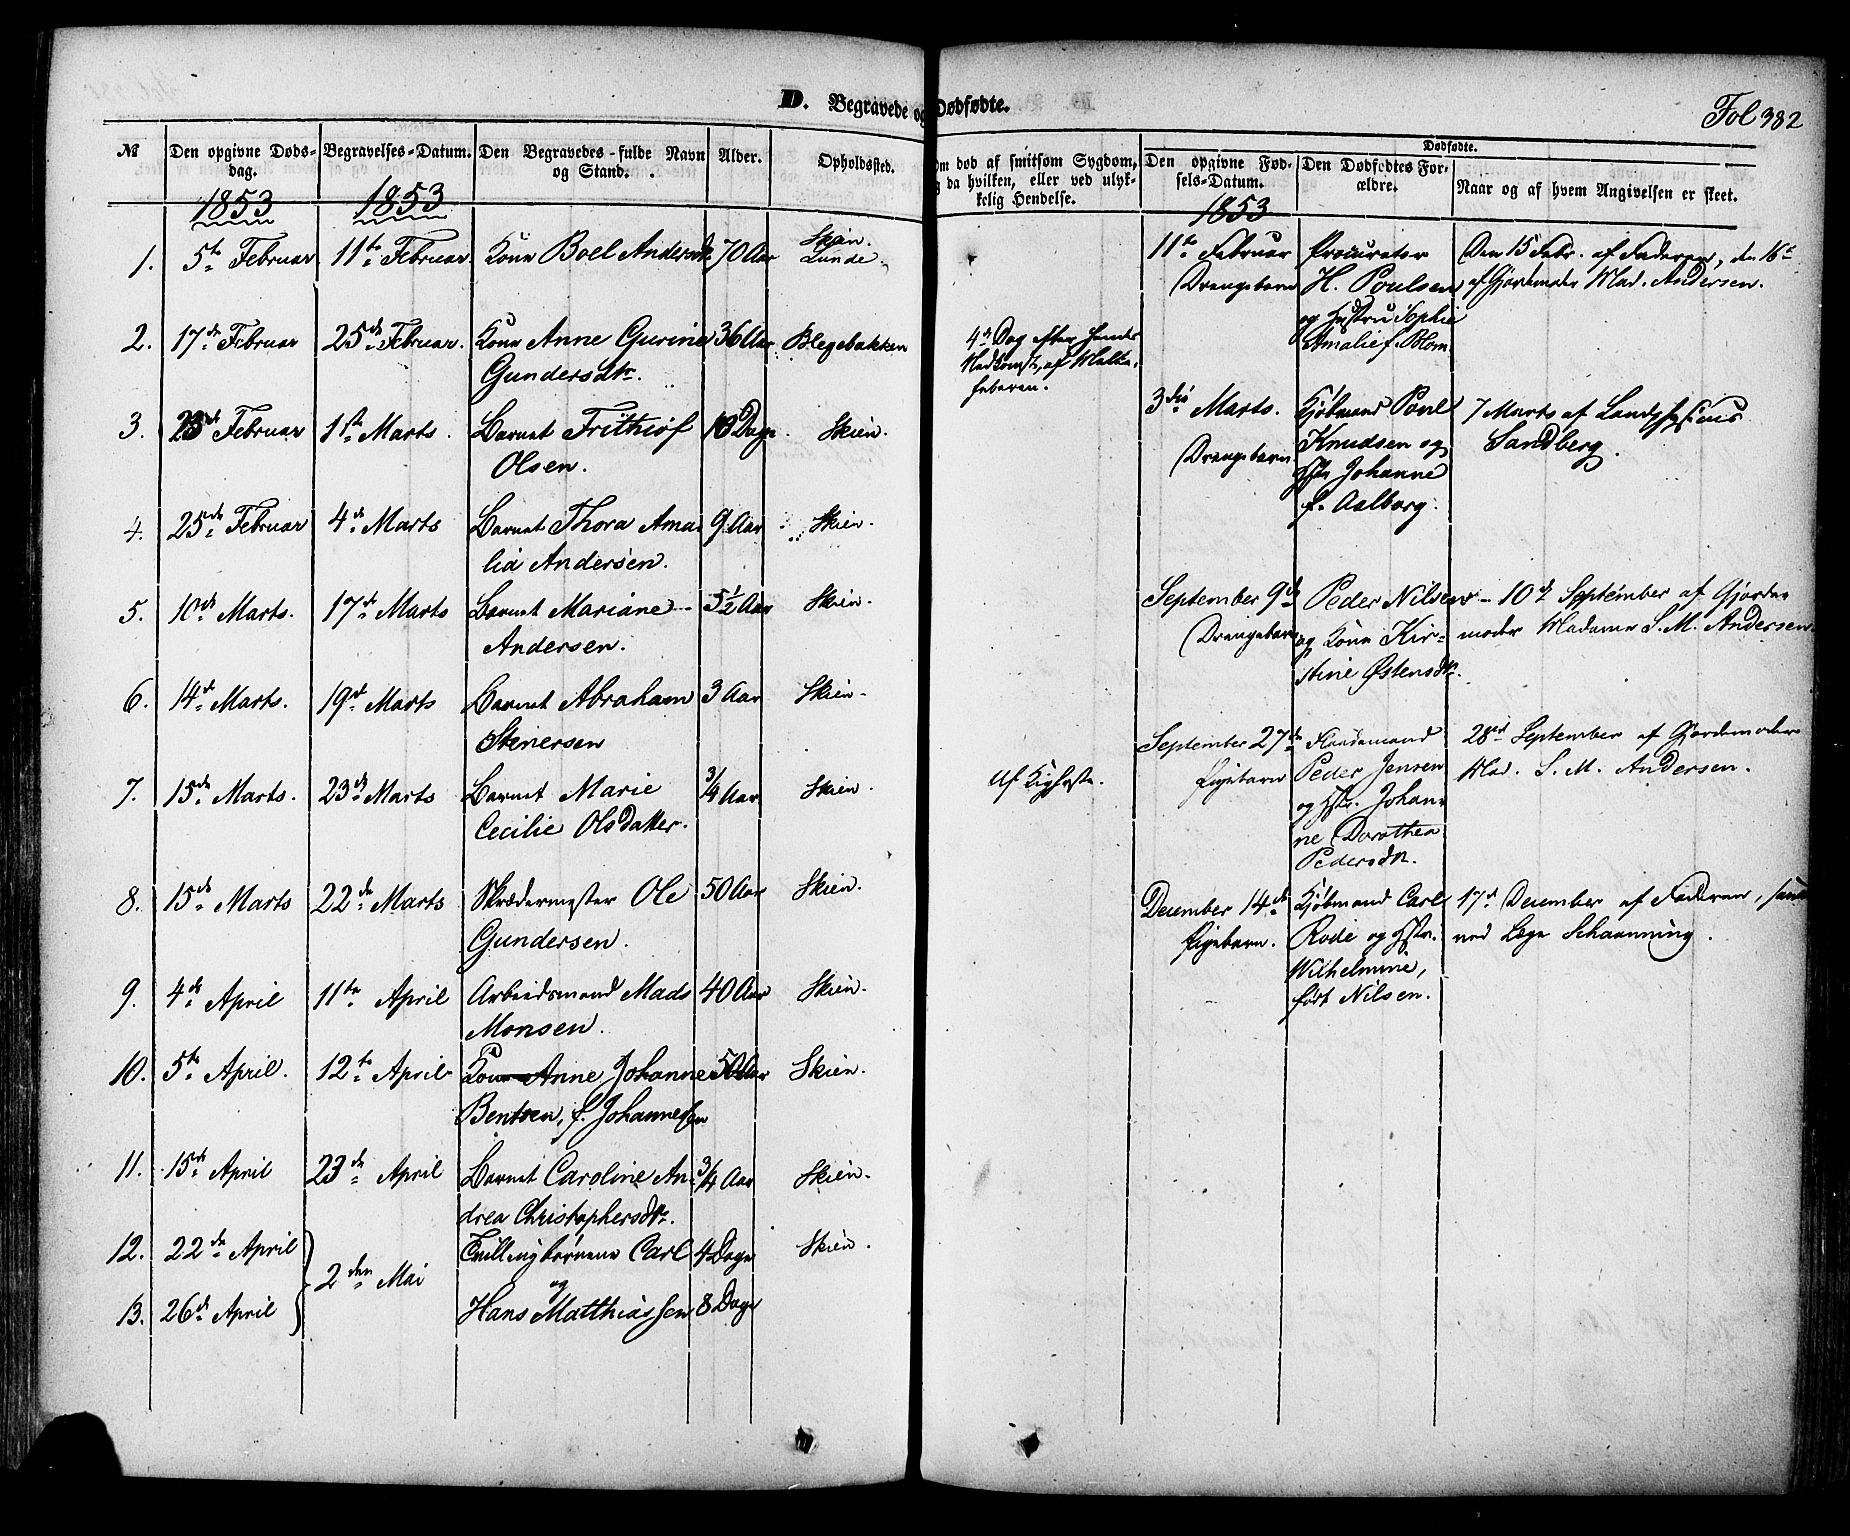 D. Begravede og Dødfødte.
Fol 382
№
Den opgivne Døds-
dag.
Begravelses-Datum.
Den Begravedes fulde Navn
og Stand.
Alder.
Opholdssted.
Om død af smitsom Sygdom,
og da hvilken, eller ved ulyk-
kelig Hendelse.
Dødfødte.
Den opgivne Fød-
sels-Datum.
Den Dødfødtes For-
ældre.
Naar og af hvem Angivelsen er skeet.
1853 1853 1853
1. 5te Februar 11te Februar Kone Boel Andersdtr 70 Aar Skien.
Lunde.
2. 17de Februar 25de Februar. Kone Anne Gurine 36 Aar Blegebakken 4de Dag efter hendes
Gundersdtr. Nedkomst, af
feberen.
3. 23de Februar 1ste Marts. Barnet Frithiof 18 Dage. Skien.
Olsen.
4. 25de Februar 4de Marts Barnet Thora Ama- 9 Aar Skien.
lia Andersen.
5. 10de Marts. 17de Marts Barnet Mariane 5½ Aar Skien.
Andersen.
6. 14de Marts. 19de Marts Barnet Abraham 3 Aar Skien.
Stenersen
7. 15de Marts. 23de Marts Barnet Marie ¾ Aar Skien. Af Kighoste.
Cecilie Olsdatter.
8. 15de Marts 22de Marts Skrædermester Ole 50 Aar Skien.
Gundersen.
9. 4de April 11te April Arbeidsmand Mads 40 Aar Skien.
Monsen.
10. 5te April. 12te April Kone Anne Johanne 50 Aar Skien.
Bentsen, f. Johannessen
11. 15de April 23de April Barnet Caroline An- ¾ Aar Skien.
drea Christophersdtr.
12. 22de April 2den Mai Tvillingbørnene Carl 4 Dage Skien.
og
13. 26de April Hans Matthiassen 8 Dage
11te Februar Procurator Den 15 Febr. af Faderen, den 16de
Drengebarn H. Poulsen af Gjordemoder Mad. Andersen.
og Hustru Sophie
Amalie f. Blom.
3die Marts. Kjøbmand Poul 7 Marts af Landphysicus
Drengebarn Knudsen og Sandberg.
Hstr. Johanne
f. Aalborg.
September 9de Peder Nilsen 10de September af Gjorde-
Drengebarn og Kone Kir- moder Madame S. M. Andersen.
stine Østensdtr.
September 27de Peder Jensen 28de September af Gjordemoder
Pigebarn og Hstr. Johan- Mad. S. M. Andersen.
ne Dorothea
Pedersdtr.
December 14de Kjøbmand Carl 17de December af Faderen, samt
Pigebarn. Rode og Hstr. ved Læge Schaanning.
Wilhelmine,
født Nilsen.